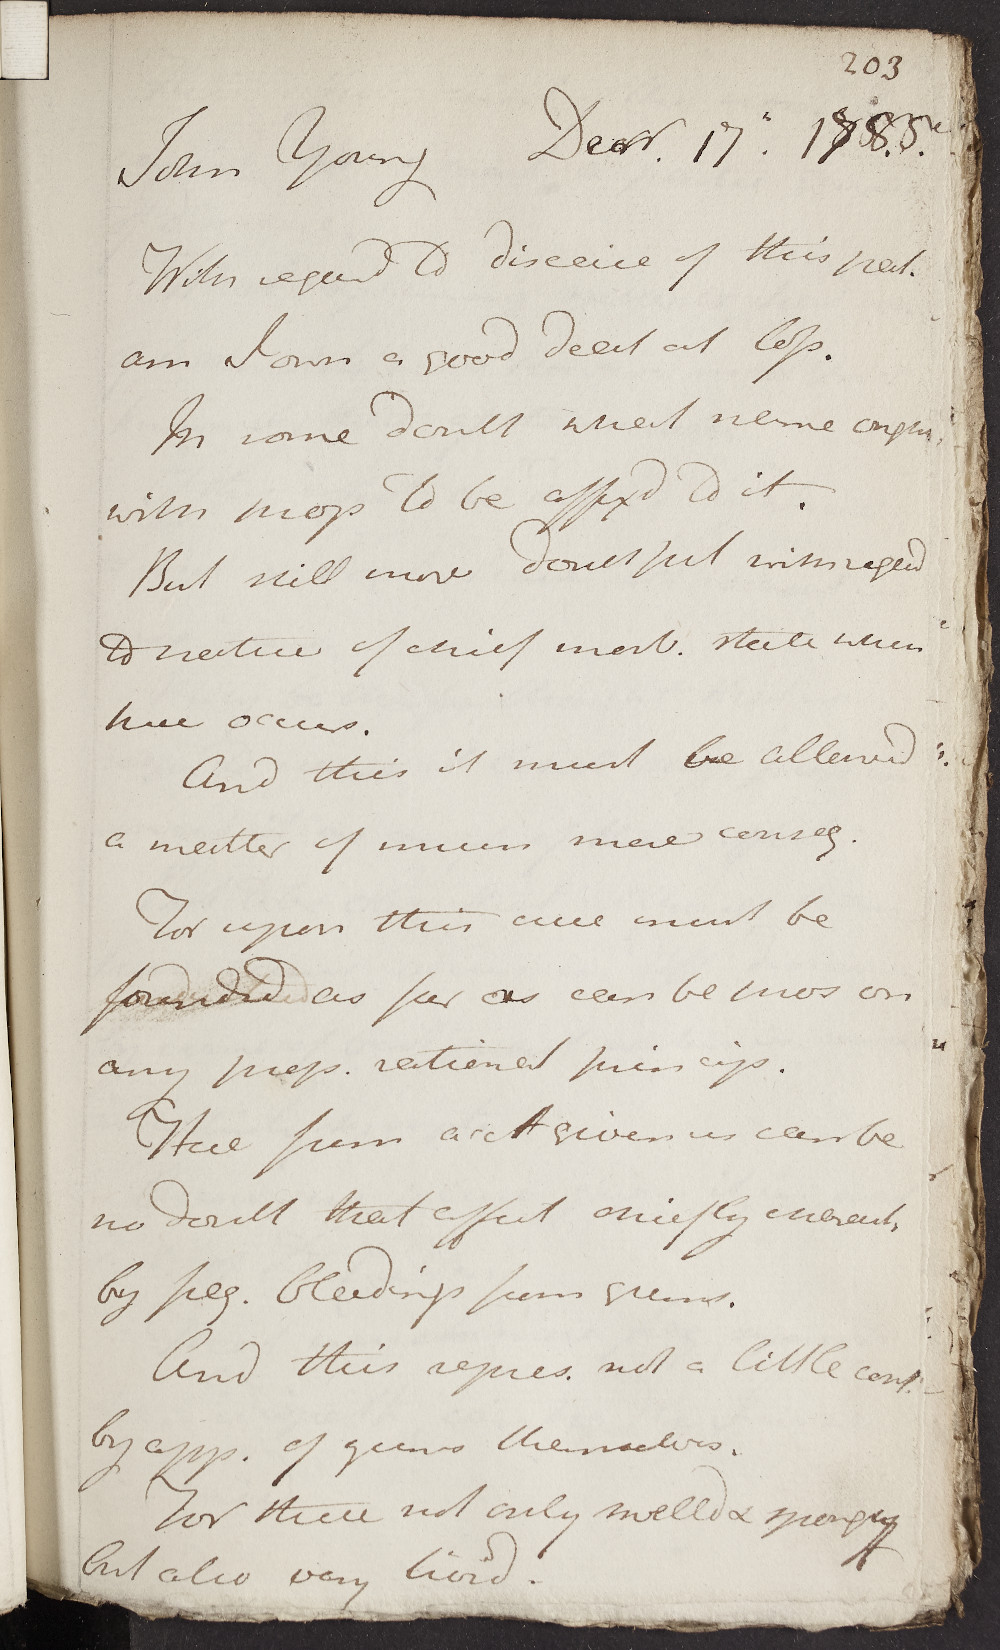 203
John Young Decr. 17. 1785.
With regard to disease of this pat.
am I own a good deal at loss.
In some doubt what name ought
with prop to be affixd to it.
But still more doubtful with regard
to nature of chief morb. state when
here occurs.
And this it must be allowed
a matter of much more conseq.
For upon this cure must be
founded as far as can be pros on
any prop. rational princip.
Here from acct given us can be
no doubt that affect chiefly charact.
by freq. bleedings from gums.
And this repres. not a little conf.
by app. of gums themselves.
For these not only swelld & spongy
but also very livid.